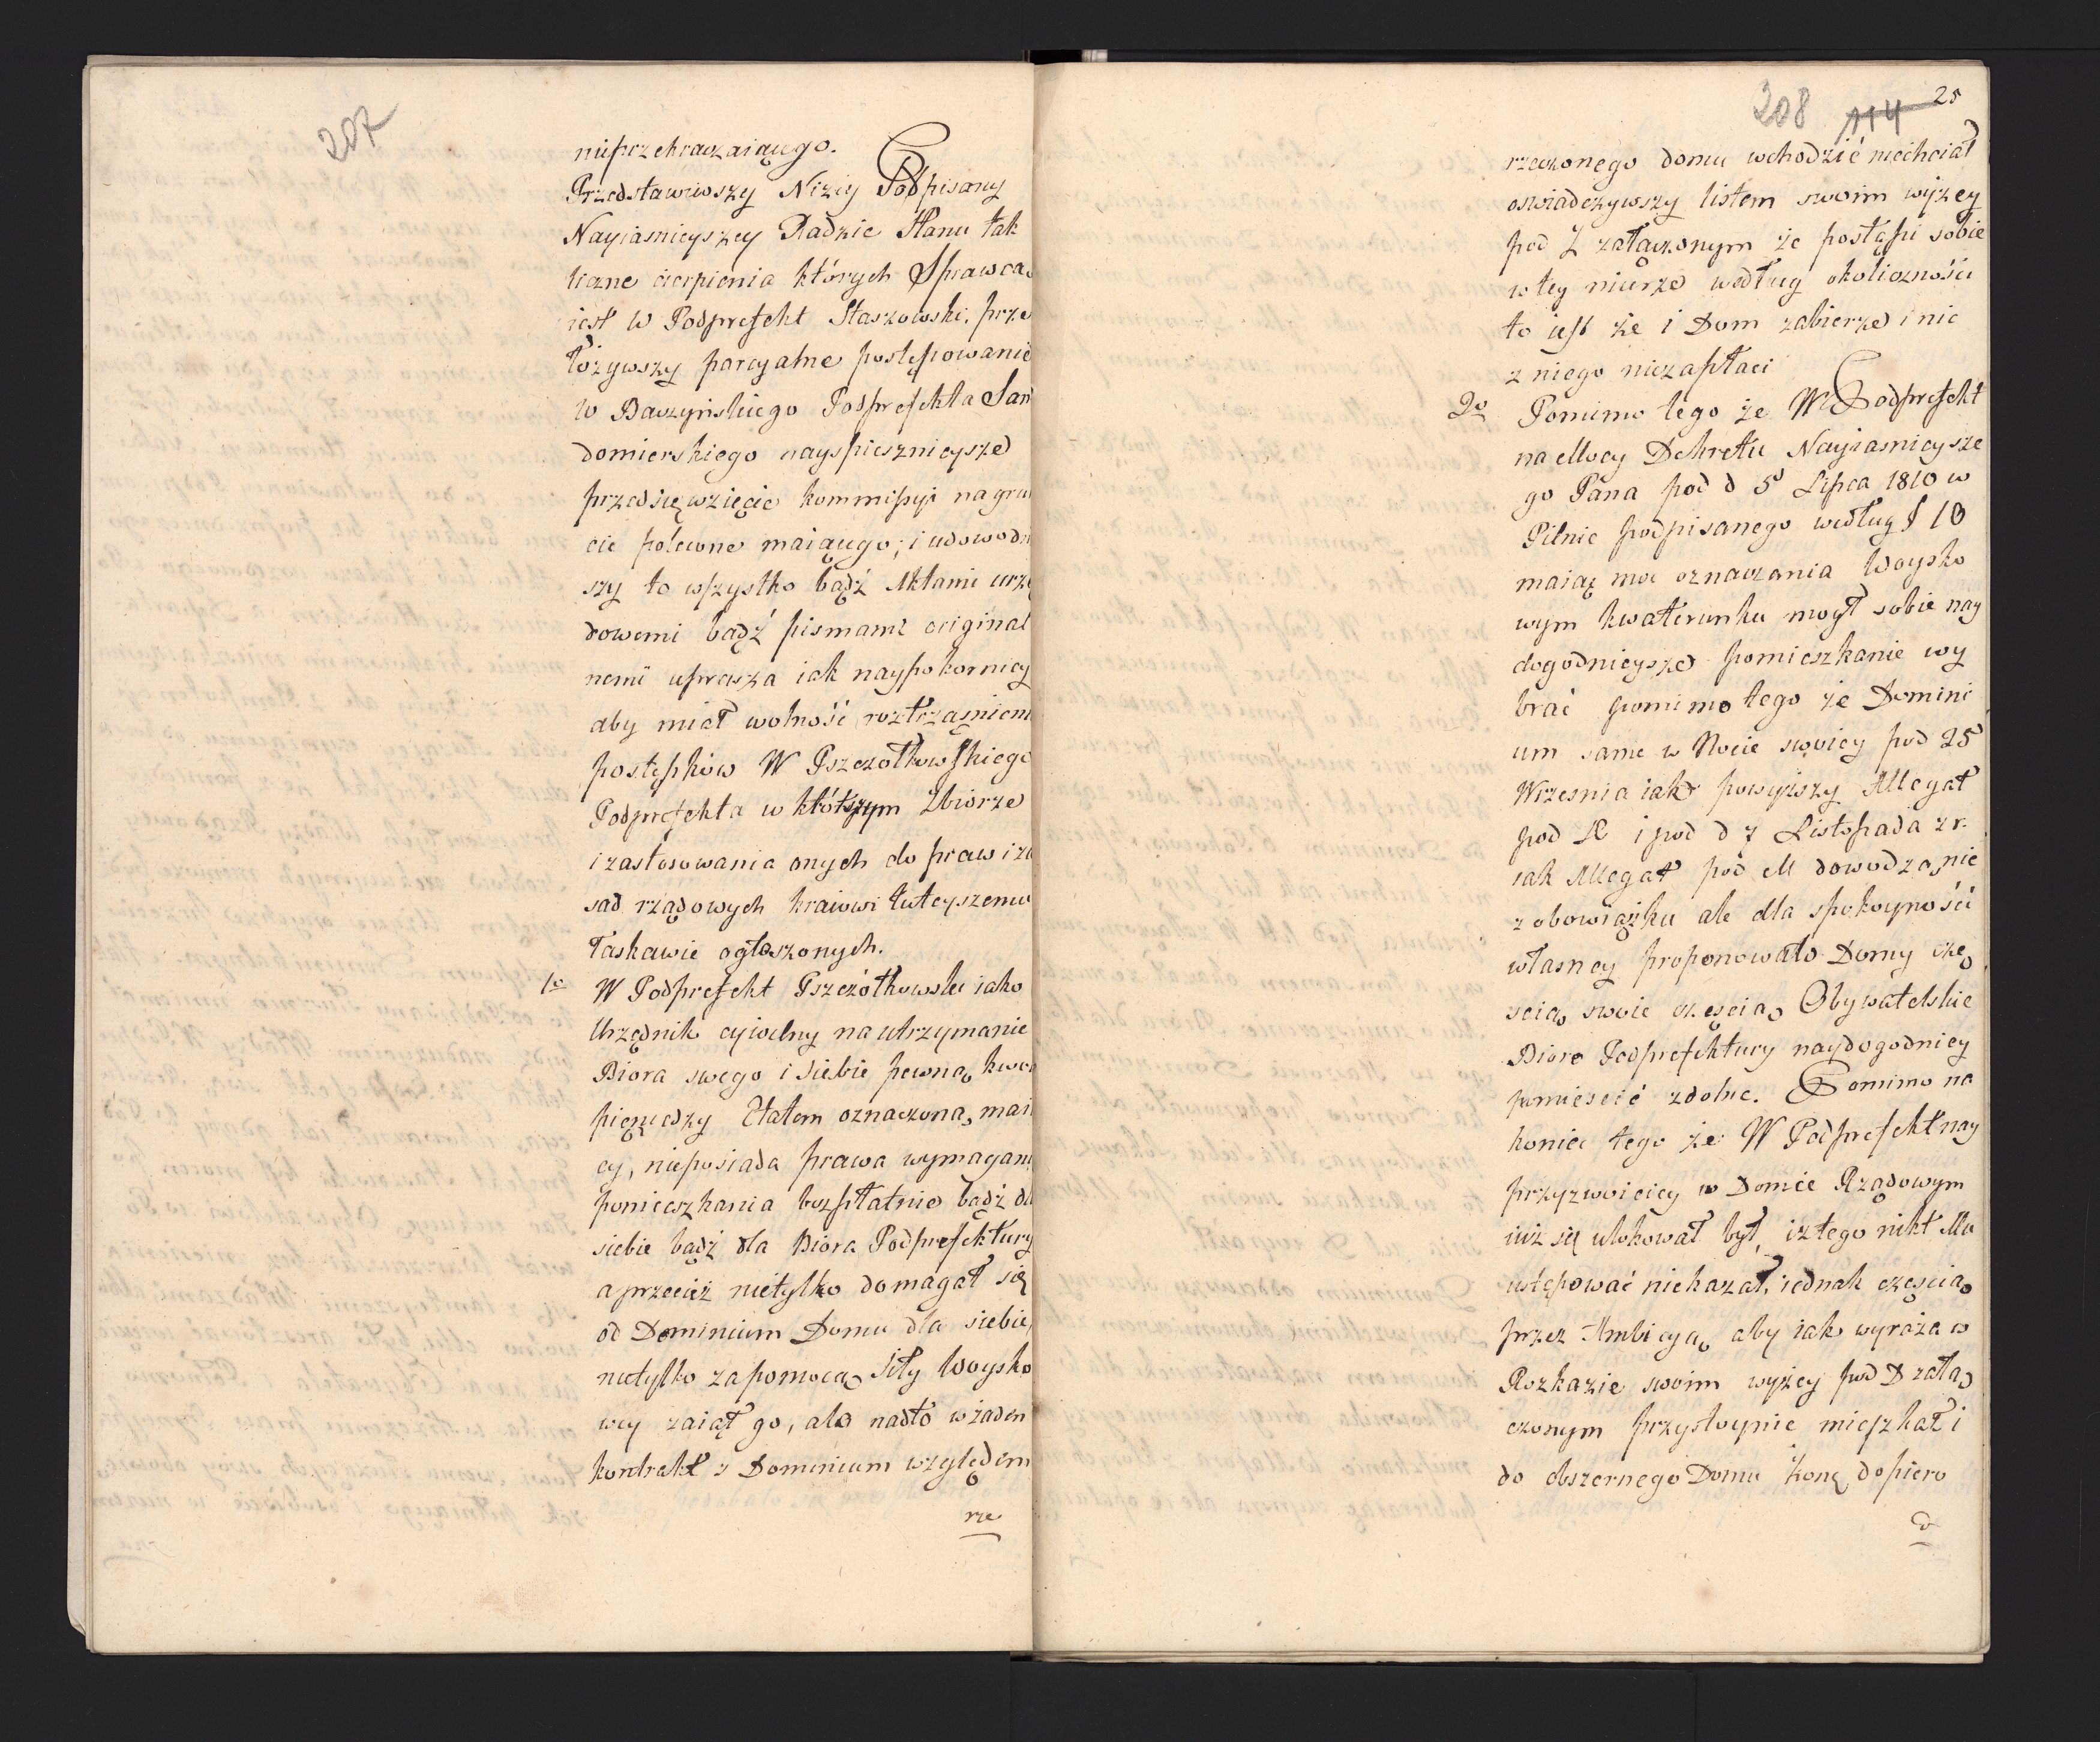 207
nieprzekraczaiącego.
Przedstawiwszy Niżey Podpisany
Nayiasnieyszey Radzie Stanu tak
liczne cierpienia których Sprawcą
iest W Podprefekt Staszowski, prze
łożywszy parcyalne postępowanie
W Baczyńskiego Podprefekta San
domierskiego nayspiesznieysze
przedsięwzięcie kommissyi na grun
cie polecone maiącego; i udowodni
szy to wszystko bądź Aktami urzę
dowemi bądź pismami originał
nemi uprasza iak naypokorniey
aby miał wolność roztrząśnieni
postępków W Pszczółkowskiego
Podprefekta w krótszym Zbiorze
i zastosowania onych do praw i za
sad rządowych kraiowi tuteyszemu
łaskawie ogłoszonych.
1o W Podprefekt Pszczółkowski iako
Urzędnik cywilny na utrzymanie
Biora swego i siebie pewną kwo
pieniędzy Etatem oznaczoną mai
cy, nieposiada prawa wymagani
pomieszkania bezpłatnie bądź dl
siebie bądź dla Biora Podprefektury
a przecież nietylko domagał się
od Dominium Domu dla siebie,
nietylko za pomocą Siły Woysko
wey zaiął go, ale nadto w żaden
kontrakt z Dominium względem
rze
208 114 25
rzeczonego domu wchodzić niechciał
oswiadczywszy listem swoim wyżey
pod L załączonym że postąpi sobie
w tey mierze według okoliczności
to iest że i Dom zabierze i nic
z niego niezapłaci
2o Pomimo tego że W Podprefekt
na Mocy Dekretu Nayiasnieysze
go Pana pod d 5 Lipca 1810 w
Pilnie podpisanego według § 10
maiąc moc oznaczania Woysko
wym kwaterunku mogł sobie nay
dogodnieysze pomieszkanie wy
brać pomimo tego że Domini
um same w Nocie swoiey pod 25
Wrzesnia iak powyższy Allegat
pod K i pod d 7 Listopada z r.
iak Allegat pod M dowodzą, nie
z obowiązku ale dla spokoyności
własney proponowało Domy czę
scią swoie częscią Obywatelskie
Bioro Podprefektury naydogodniey
pomieścić zdolne. Pomimo na
koniec tego że W Podprefekt nay
przyzwoiciey w Domie Rządowym
iuż się ulokował był, i z tego nikt Mu
ustępować niekazał, iednak częscią
przez Ambicyą aby iak wyraża w
Rozkazie swoim wyżey pod D załą
czonym przystoynie mieszkał i
do obszernego Domu żonę dopiero